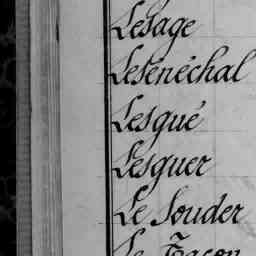 Lesage
Lesénéchal
Lesqué
Lesquer
Le Souder
Le Tacon